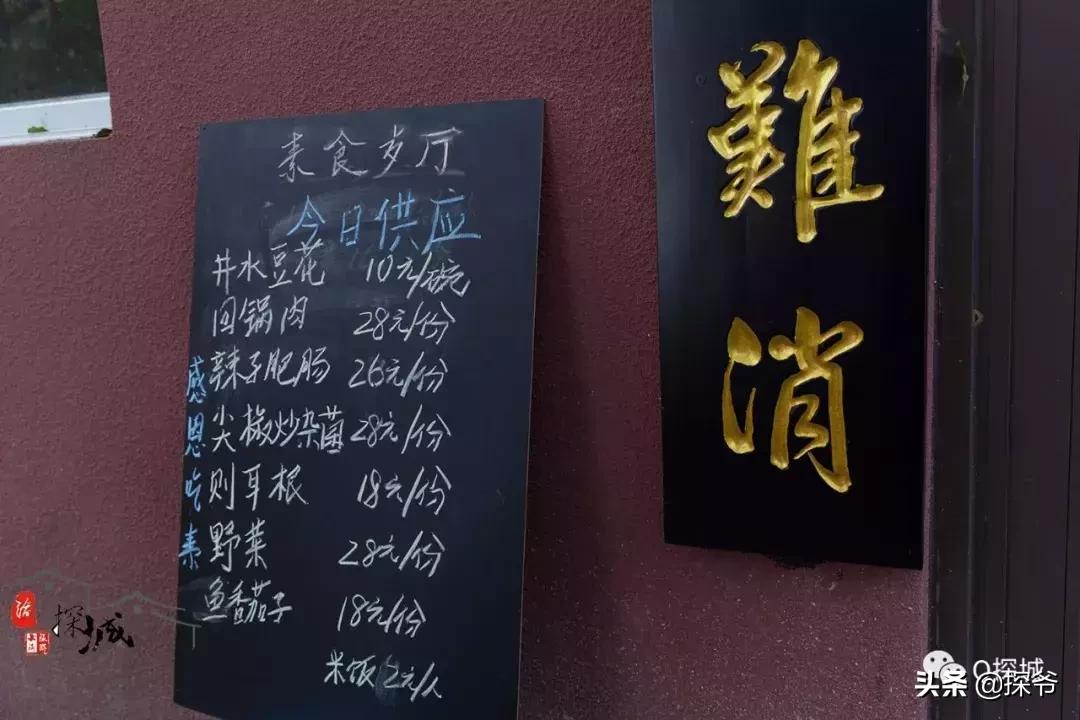 素食岁厅
今日供应
井水豆花 10元/碗
回锅肉 28元/份
辣子肥肠 26元/份
尖椒炒杂菌 28元/份
则耳根 18元/份
野菜 28元/份
鱼香茄子 18元/份
米饭 2元/人
感恩吃素
難消
探城
O探城
头条 @探爷